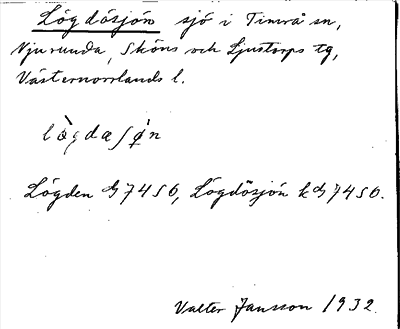 Lögdösjön sjö i Timrå sn,
Njurunda, Sköns och Ljustorps tg,
Västernorrlands l.
lògdaʃǿn
Lögden G 7456, Lögdösjön k G 7456.
Valter Jansson 1932.